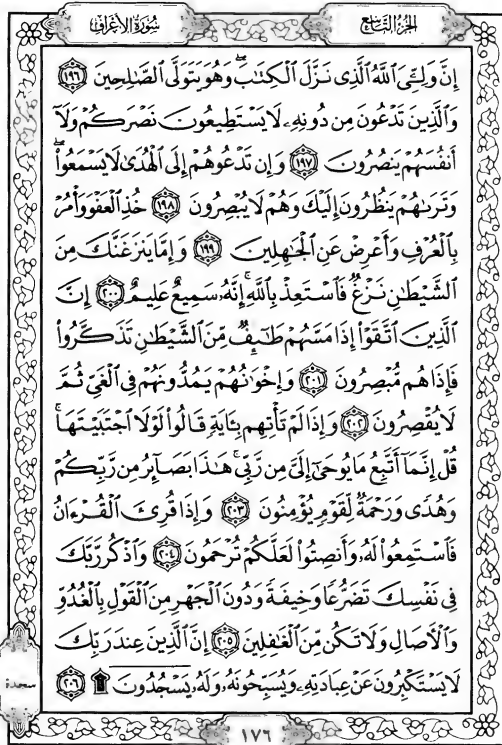 الجزء التاسع
سورة الأعراف
إِنَّ وَلِـِّۧيَ ٱللَّهُ ٱلَّذِي نَزَّلَ ٱلۡكِتَٰبَۖ وَهُوَ يَتَوَلَّى ٱلصَّٰلِحِينَ ١٩٦
وَٱلَّذِينَ تَدۡعُونَ مِن دُونِهِۦ لَا يَسۡتَطِيعُونَ نَصۡرَكُمۡ وَلَآ
أَنفُسَهُمۡ يَنصُرُونَ ١٩٧ وَإِن تَدۡعُوهُمۡ إِلَى ٱلۡهُدَىٰ لَا يَسۡمَعُواْۖ
وَتَرَىٰهُمۡ يَنظُرُونَ إِلَيۡكَ وَهُمۡ لَا يُبۡصِرُونَ ١٩٨ خُذِ ٱلۡعَفۡوَ وَأۡمُرۡ
بِٱلۡعُرۡفِ وَأَعۡرِضۡ عَنِ ٱلۡجَٰهِلِينَ ١٩٩ وَإِمَّا يَنزَغَنَّكَ مِنَ
ٱلشَّيۡطَٰنِ نَزۡغٞ فَٱسۡتَعِذۡ بِٱللَّهِۚ إِنَّهُۥ سَمِيعٌ عَلِيمٌ ٢٠٠ إِنَّ
ٱلَّذِينَ ٱتَّقَوۡاْ إِذَا مَسَّهُمۡ طَٰٓئِفٞ مِّنَ ٱلشَّيۡطَٰنِ تَذَكَّرُواْ
فَإِذَا هُم مُّبۡصِرُونَ ٢٠١ وَإِخۡوَٰنُهُمۡ يَمُدُّونَهُمۡ فِي ٱلۡغَيِّ ثُمَّ
لَا يُقۡصِرُونَ ٢٠٢ وَإِذَا لَمۡ تَأۡتِهِم بِـَٔايَةٖ قَالُواْ لَوۡلَا ٱجۡتَبَيۡتَهَاۚ
قُلۡ إِنَّمَآ أَتَّبِعُ مَا يُوحَىٰٓ إِلَيَّ مِن رَّبِّيۚ هَٰذَا بَصَآئِرُ مِن رَّبِّكُمۡ
وَهُدٗى وَرَحۡمَةٞ لِّقَوۡمٖ يُؤۡمِنُونَ ٢٠٣ وَإِذَا قُرِئَ ٱلۡقُرۡءَانُ
فَٱسۡتَمِعُواْ لَهُۥ وَأَنصِتُواْ لَعَلَّكُمۡ تُرۡحَمُونَ ٢٠٤ وَٱذۡكُر رَّبَّكَ
فِي نَفۡسِكَ تَضَرُّعٗا وَخِيفَةٗ وَدُونَ ٱلۡجَهۡرِ مِنَ ٱلۡقَوۡلِ بِٱلۡغُدُوِّ
وَٱلۡأٓصَالِ وَلَا تَكُن مِّنَ ٱلۡغَٰفِلِينَ ٢٠٥ إِنَّ ٱلَّذِينَ عِندَ رَبِّكَ
لَا يَسۡتَكۡبِرُونَ عَنۡ عِبَادَتِهِۦ وَيُسَبِّحُونَهُۥ وَلَهُۥ يَسۡجُدُونَۤ۩ ٢٠٦
سجدة
١٧٦